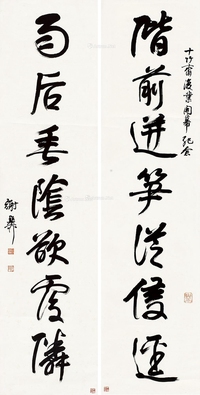 十竹齋復業開幕紀念
階前迸笋從侵逕
雨后垂陰欲覆隣
謝